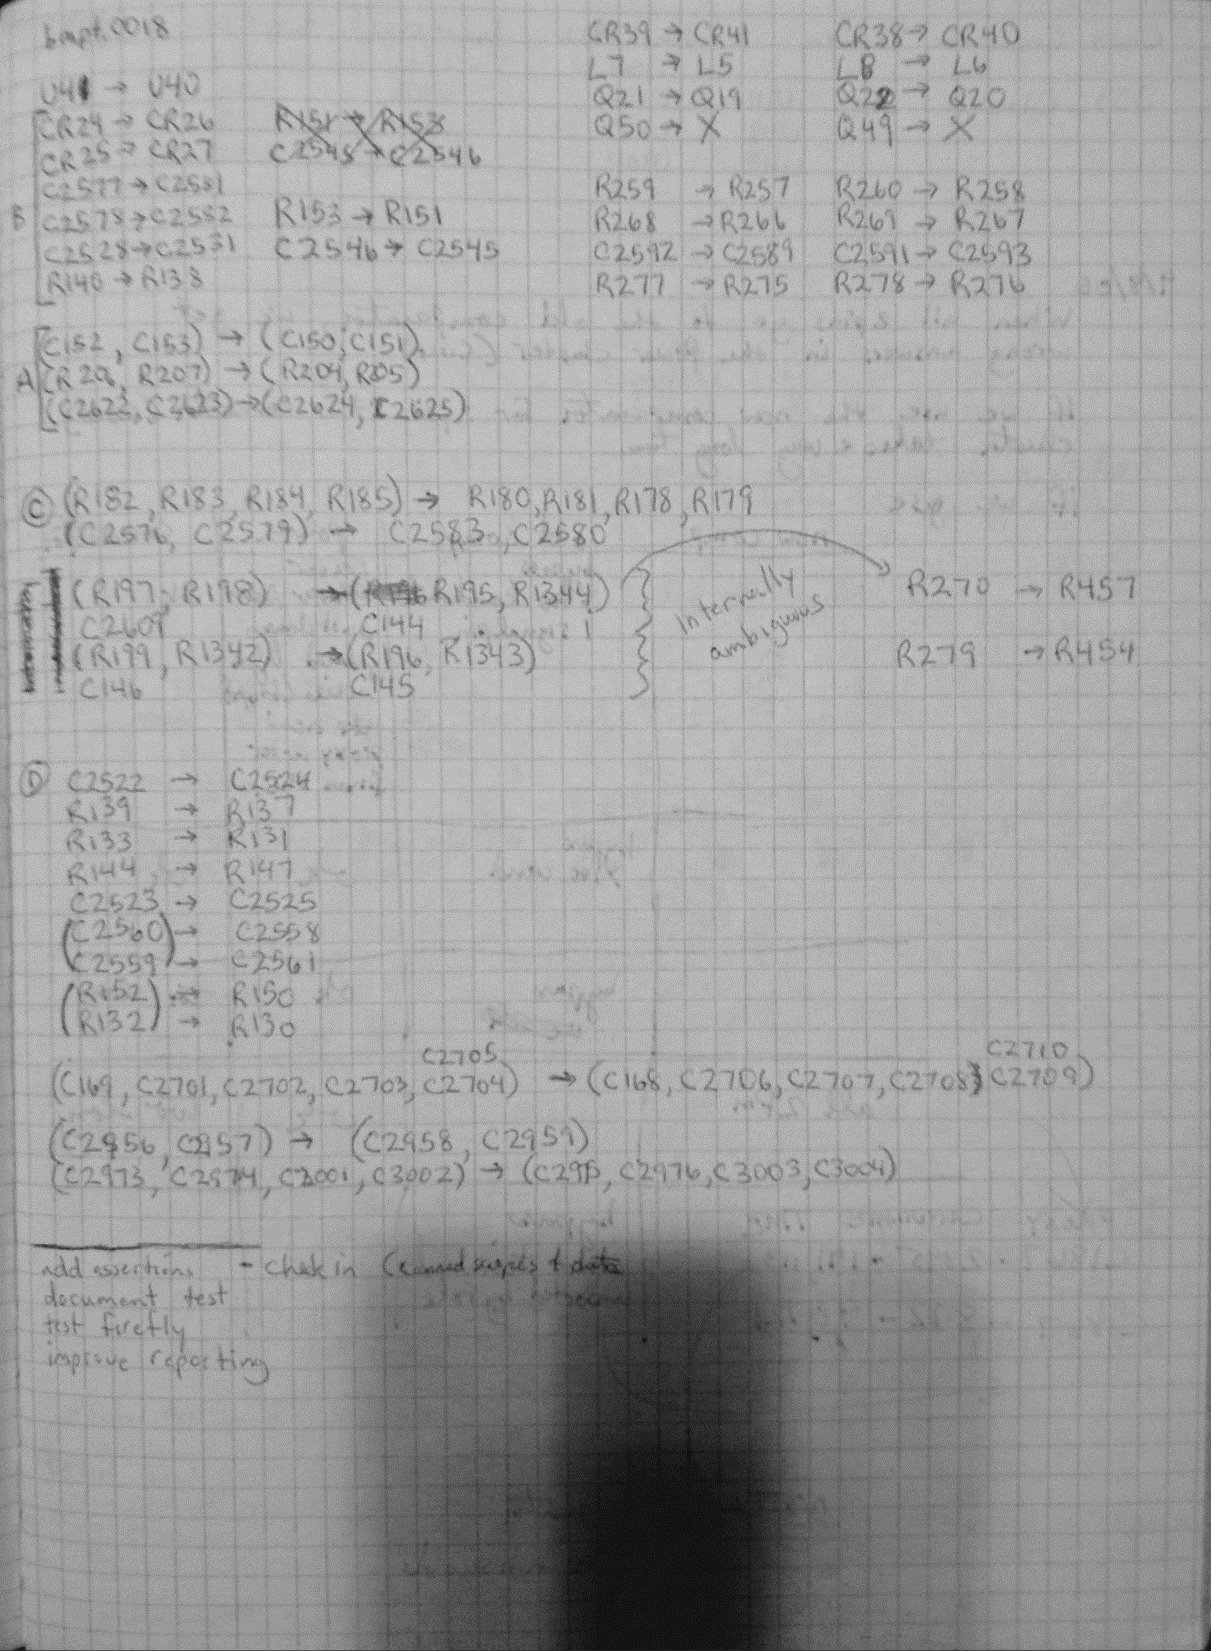 bmpt.0018
U41 → U40
CR24 → CR26
CR25 → CR27
C2577 → C2581
B C2578 → C2582
C2528 → C2531
R140 → R138
R151 → R153
C2545 → C2546
R153 → R151
C2546 → C2545
CR39 → CR41 CR38 → CR40
L7 → L5 L8 → L6
Q21 → Q19 Q22 → Q20
Q50 → X Q49 → X
R259 → R257 R260 → R258
R268 → R266 R269 → R267
C2592 → C2589 C2591 → C2593
R277 → R275 R278 → R276
(C152, C153) → (C150, C151)
A (R206, R207) → (R204, R205)
(C2622, C2623) → (C2624, C2625)
C (R182, R183, R184, R185) → R180, R181, R178, R179
(C2576, C2579) → C2583, C2580
(R197, R198) → (R195, R1344)
C2607 C144
(R199, R1342) → (R196, R1343)
C146 C145
Internally
ambiguous
R270 → R457
R279 → R454
D C2522 → C2524
R139 → R137
R133 → R131
R144 → R147
C2523 → C2525
(C2560) → C2558
(C2559) → C2561
(R152) → R150
(R132) → R130
C2705 C2710
(C169, C2701, C2702, C2703, C2704) → (C168, C2706, C2707, C2708, C2709)
(C2956, C2957) → (C2958, C2959)
(C2973, C2974, C3001, C3002) → (C2975, C2976, C3003, C3004)
add assertions - check in canned scripts & data
document test
test firefly
improve reporting